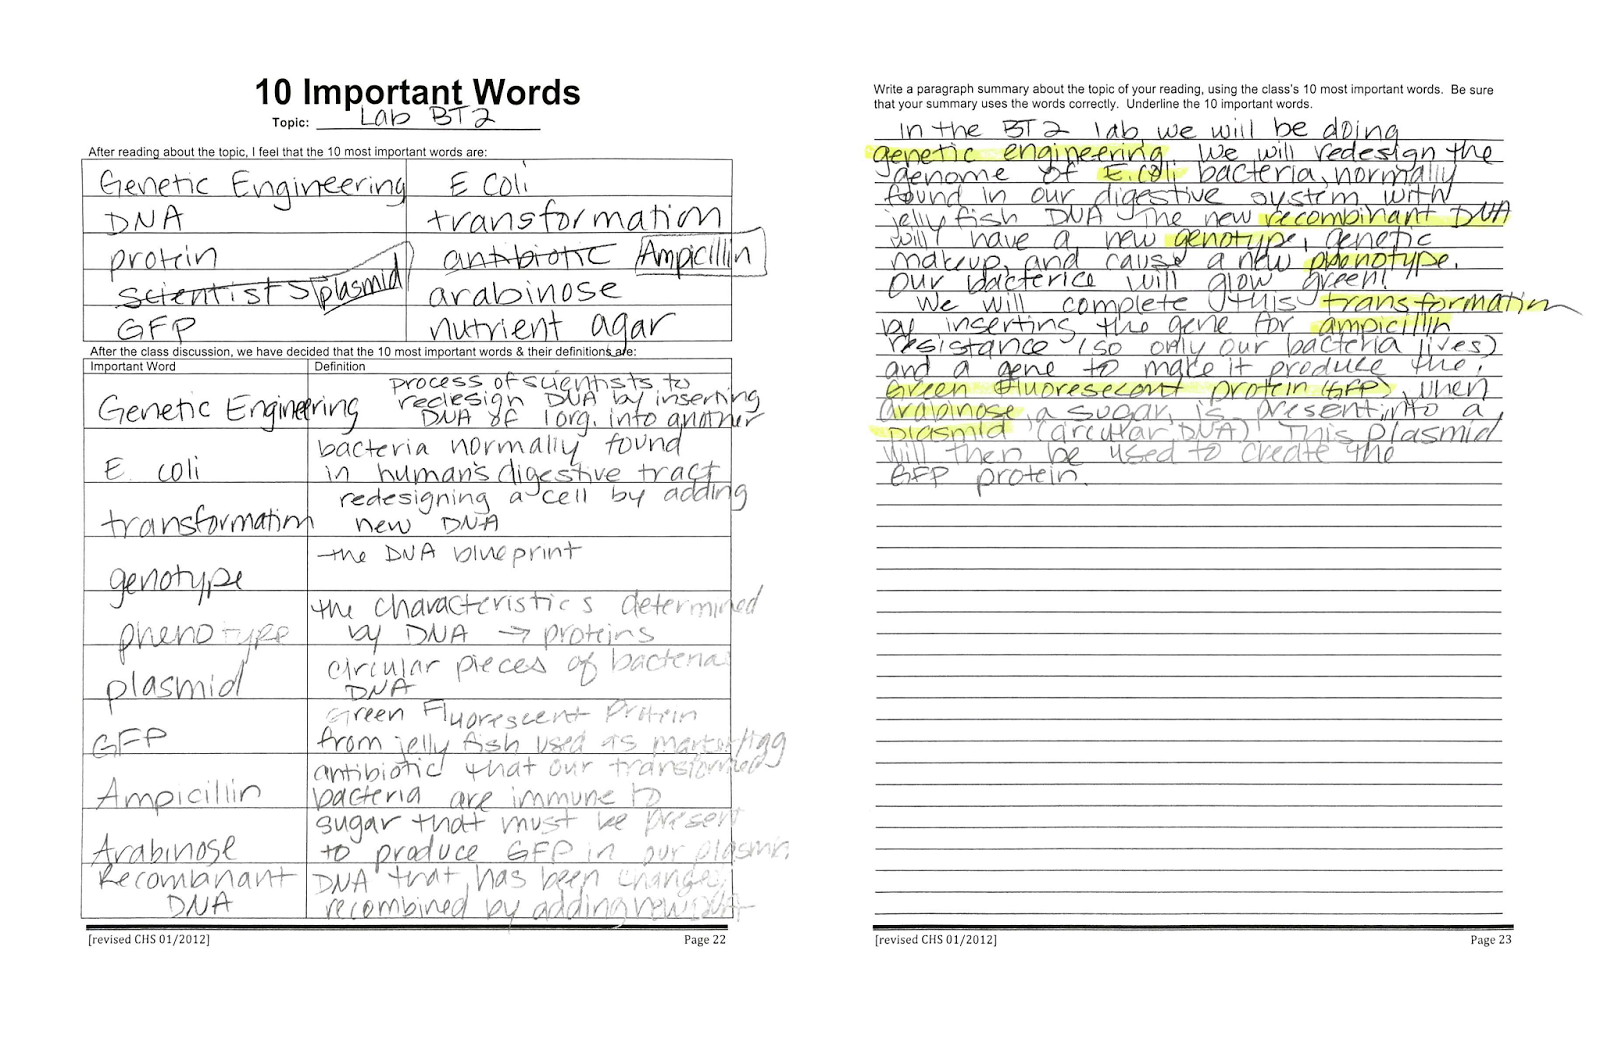 10 Important Words
Topic: Lab BT2
After reading about the topic, I feel that the 10 most important words are:
Genetic Engineering E Coli
DNA transformation
protein antibiotic Ampicillin
scientists plasmid arabinose
GFP nutrient agar
After the class discussion, we have decided that the 10 most important words & their definitions are:
Important Word Definition
Genetic Engineering process of scientists to
redesign DNA by inserting
DNA of 1 org. into another
E coli bacteria normally found
in human's digestive tract
transformation redesigning a cell by adding
new DNA
genotype the DNA blueprint
phenotype the characteristics determined
by DNA → proteins
plasmid circular pieces of bacterias
DNA
GFP Green Fluorescent Protein
from jelly fish used as marker/tag
Ampicillin antibiotic that our transformed
bacteria are immune to
Arabinose sugar that must be present
to produce GFP in our plasmid
Recombanant DNA DNA that has been changed,
recombined by adding new DNA
[revised CHS 01/2012] Page 22
Write a paragraph summary about the topic of your reading, using the class's 10 most important words. Be sure
that your summary uses the words correctly. Underline the 10 important words.
In the BT2 lab we will be doing
genetic engineering. We will redesign the
genome of E. coli bacteria, normally
found in our digestive system with
jelly fish DNA. The new recombinant DNA
will have a new genotype, genetic
makeup, and cause a new phenotype.
Our bacterice will glow green!
We will complete this transformation
by inserting the gene for ampicillin
resistance (so only our bacteria lives)
and a gene to make it produce the
Green Fluoresecent protein (GFP), when
arabinose, a sugar, is present, into a
plasmid (circular DNA). This plasmid
will then be used to create the
GFP protein.
[revised CHS 01/2012] Page 23